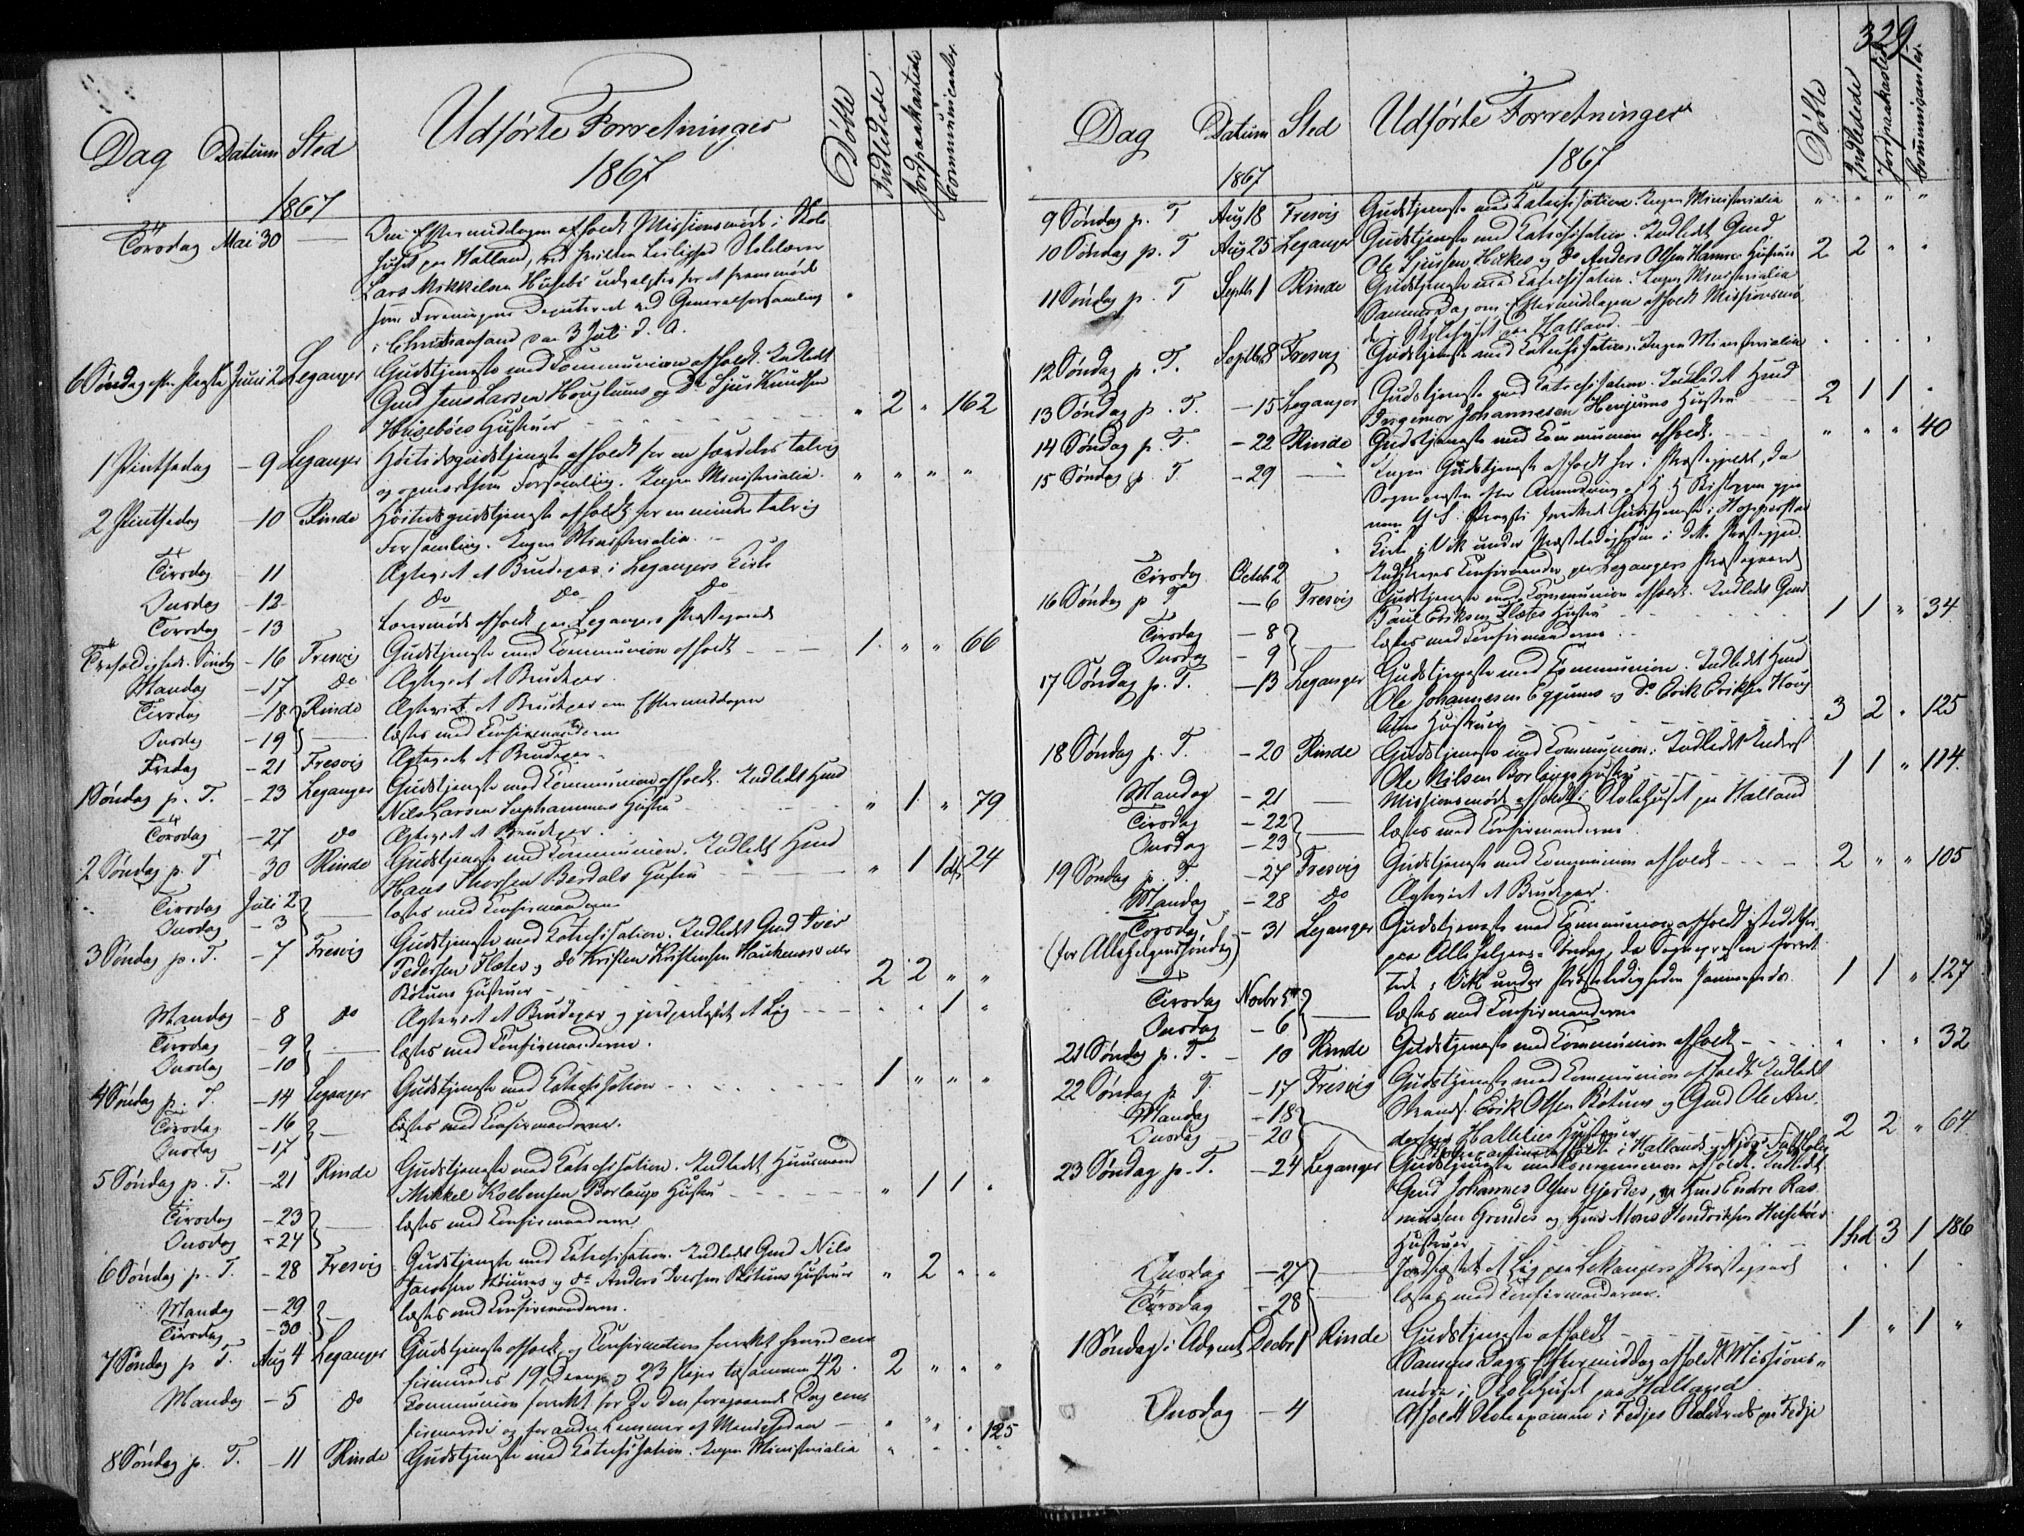 Dag Datum Sted Udførte Forretninger Døbte Indledede Jordpaakastede Communicanter
1867 1867
Torsdag Mai 30 — Om Eftermiddagen afholdt Missionsmøde i Skole
huset paa Halland, ved hvilken Leilighed Skolelærer
Lars Mikkelsen Husebø udvalgtes for at fremmøde
som Foreningens Deputeret ved Generalforsamling
i Christiansand den 3 Juli d. A.
6 Søndag efter Paaske Juni 2 Leganger Gudstjeneste med Communion afholdt. Indledt
Gmd Jens Larsen Houglums og Do Sjur Knudsen
Husebøes Hustruer " 2 " 162
1 Pintsedag — 9 Leganger Høitidsgudstjeneste afholdt for en særdeles talrig
og opmærksom Forsamling. Ingen Ministerialia. " " " "
2 Pintsedag — 10 Rinde Høitidsgudstjeneste afholdt for en mindre talrig
Forsamling. Ingen Ministerialia.
Tirsdag — 11 Ægteviet et Brudepar i Legangers Kirke
Onsdag — 12 do do do
Torsdag — 13 afholdt paa Legangers Præstegaard
Trefoldigheds Søndag — 16 Fresvig Gudstjeneste med Communion afholdt 1 " " 66
Mandag — 17 do Ægteviet et Brudepar.
Tirsdag — 18 Rinde Ægteviet et Brudepar om Eftermiddagen
Onsdag — 19 læstes med Confirmanderne
Fredag — 21 Fresvig Ægteviet et Brudepar
1 Søndag p. T. — 23 Leganger Gudstjeneste med Communion afholdt. Indledt Huusmd
Nils Larsen Hustru " 1 " 79
Torsdag — 27 do Ægteviet et Brudepar
2 Søndag p. T — 30 Rinde Gudstjeneste med Communion. Indledt Huusmd
Hans Thorsen Berdals Hustru " 1 1 24
Tirsdag Juli 2 læstes med Confirmanderne
Onsdag — 3
3 Søndag p. T. — 7 Fresvig Gudstjeneste med Catechisation. Indledt Gmd Iver
Pedersen Flæte og do Kristen Kristensen
Bøtuns Hustruer 2 2 " "
Mandag — 8 do Ægteviet et Brudepar og jordpaakastet et Lig " " 1 "
Tirsdag — 9 læstes med Confirmanderne.
Onsdag — 10
4 Søndag p. T. — 14 Leganger Gudstjeneste med Catechisation 1 " " "
Tirsdag — 16 læstes med Confirmanderne.
Onsdag — 17
5 Søndag p. T. — 21 Rinde Gudstjeneste med Catechisation. Indledt Huusmand
Mikkel Kolbensen Borlaugs Hustru " 1 1 "
Tirsdag — 23 læstes med Confirmanderne
Onsdag — 24
6 Søndag p. T. — 28 Fresvig Gudstjeneste med Catechisation. Indledt Gmd Nils
Jacobsen og do Anders Iversen Bøtuns Hustruer " 2 " "
Mandag — 29 læstes med Confirmanderne.
Tirsdag — 30
7 Søndag p T. Aug 4 Leganger Gudstjeneste afholdt og Confirmation forrettet hvorved con
firmeredes 19 Drenge og 23 Piger tilsammen 42. 2 " " "
Mandag — 5 do Communion forrettet for de den foregaaende Dag con
firmerede og for andre Lemmer af Menigheden — " " " 125
8 Søndag p. T. — 11 Rinde Gudstjeneste med Catechisation. Ingen Ministerialia " " " "
329.
Dag Datum Sted Udførte Forretninger Døbte Indledede Jordpaakastede Communicanter
1867 1867
9 Søndag p. T Aug 18 Fresvig Gudstjeneste med Catechisation. Ingen Ministerialia " " " "
10 Søndag p. T Aug 25 Leganger Gudstjeneste med Catechisation. Indledt Gmd
Ole Sjursen og do Anders Olsen Hamres Hustruer 2 2 " "
11 Søndag p. T Septbr 1 Rinde Gudstjeneste med Catechisation. Ingen Ministerialia
Samme Dag om Eftermiddagen afholdt Missionsmø
de i Skolehuset paa Halland.
12 Søndag p. T. Septbr 8 Fresvig Gudstjeneste med Catechisation. Ingen Ministerialia " " " "
13 Søndag p. T. — 15 Leganger Gudstjeneste med Catechisation. Indledet Huusmd
Ingemor Johannesen Henjums Hustru 2 1 1 "
14 Søndag p. T. — 22 Rinde Gudstjeneste med Communion afholdt. " " " 40
15 Søndag p. T — 29 — Ingen Gudstjeneste afholdt her i Præstegjeldet, da
Sognepræsten efter Anmodning af H. H. Biskoppen gjen
nem forrettet Gudstjeneste i Hopperstad
Kirke i Vik under Præsteledigheden i dette Præstegjeld
Tirsdag Octob 2 Indskreves Confirmander paa Legangers Præstegaard
16 Søndag p T — 6 Fresvig Gudstjeneste med Communion afholdt. Indledt Gmd
Paul Eriksen Flætes Hustru 1 1 " 34
Tirsdag — 8 læstes med Confirmanderne.
Onsdag — 9
17 Søndag p. T. — 13 Leganger Gudstjeneste med Communion. Indledt Huusmd
Ole Johannesen Eggums og do Erik Eriksen
Hustruer 3 2 " 125
18 Søndag p. T. — 20 Rinde Gudstjeneste med Communion. Indledt
Ole Nilsen Borlaugs Hustru 1 1 " 114.
Mandag — 21 — Missionsmøde afholdt i Skolehuset paa Halland
Tirsdag — 22 læstes med Confirmanderne.
Onsdag — 23
19 Søndag p. T. — 27 Fresvig Gudstjeneste med Communion afholdt 2 " " 105
Mandag — 28 do Ægteviet et Brudepar.
Torsdag — 31 Leganger Gudstjeneste med Communion afholdt istedetfor
(for Allehelgens Søndag) paa Allehelgens-Søndag, da Sognepræsten forret
tede i Vik under Præsteledigheden sammesteds. 1 1 " 127
Tirsdag Novbr 5 læstes med Confirmanderne
Onsdag — 6
21 Søndag p. T. — 10 Rinde Gudstjeneste med Communion afholdt " " " 32
22 Søndag p. T. — 17 Fresvig Gudstjeneste med Communion afholdt Indledt
Mandag — 18 Strands. Erik Olsen Bøtuns og Gmd Ole An
Onsdag — 20 dersen Hustruer 2 2 " 64
afholdt i Hallands og Njøs
23 Søndag p. T. — 24 Leganger Gudstjeneste med Communion afholdt. Indledt
Gmd Johannes Olsen Gjerdes, Huusmd Endre Ras
mussen Grindes og Huusmd Mons Hendriksen Husebøes
Hustruer 1 3 1 186
Onsdag — 27 — Jordfæstet et Lig paa Lekangers Præstegaard " " 1 "
Torsdag — 28 — læstes med Confirmanderne.
1 Søndag i Advent Decbr 1 Rinde Gudstjeneste afholdt 1 " 1 "
Samme Dags Eftermiddag afholdt Missions-
møde i Skolehuset paa Halland
Onsdag — 4 Afholdt Skoleexamen i Fedjes Skolekreds paa Fedje